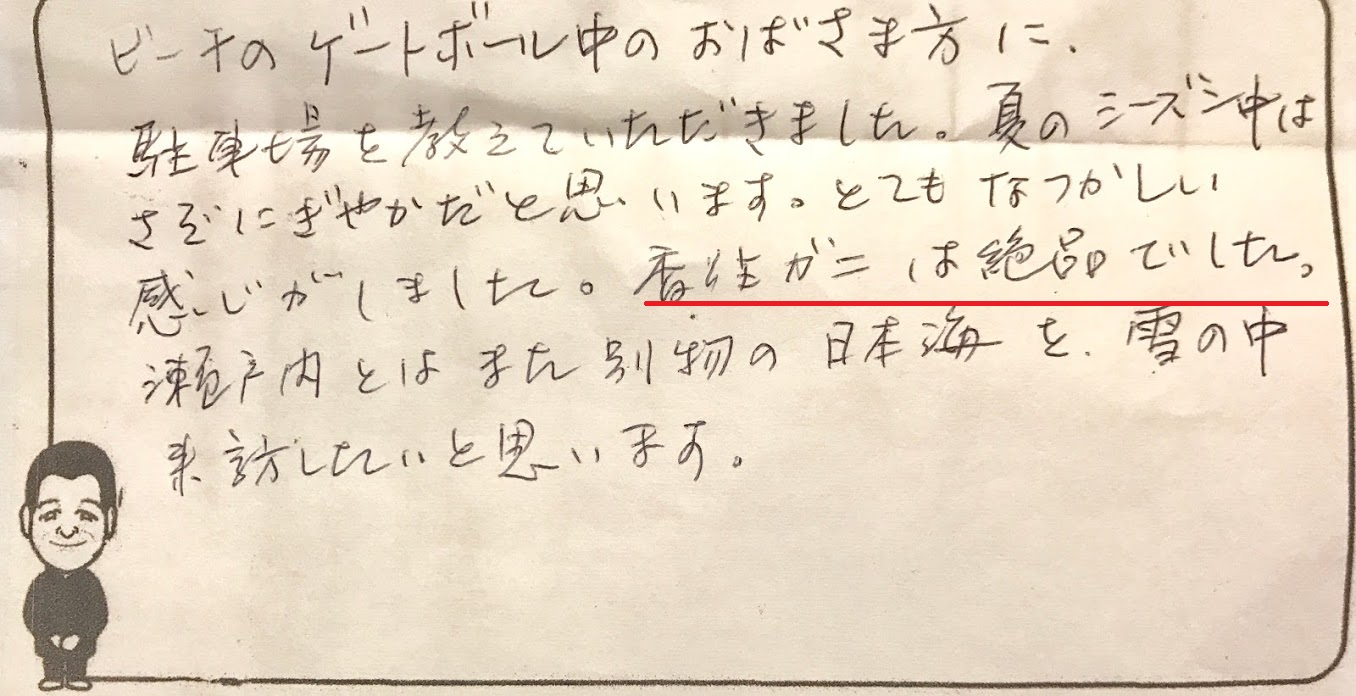 ビーチの ゲートボール中の おばさま方に、
駐車場を教えていただきました。夏のシーズン中は
さぞにぎやかだと思います。とても なつかしい
感じがしました。香住ガニは絶品でした。
瀬戸内とはまた別物の日本海を、雪の中
来訪したいと思います。